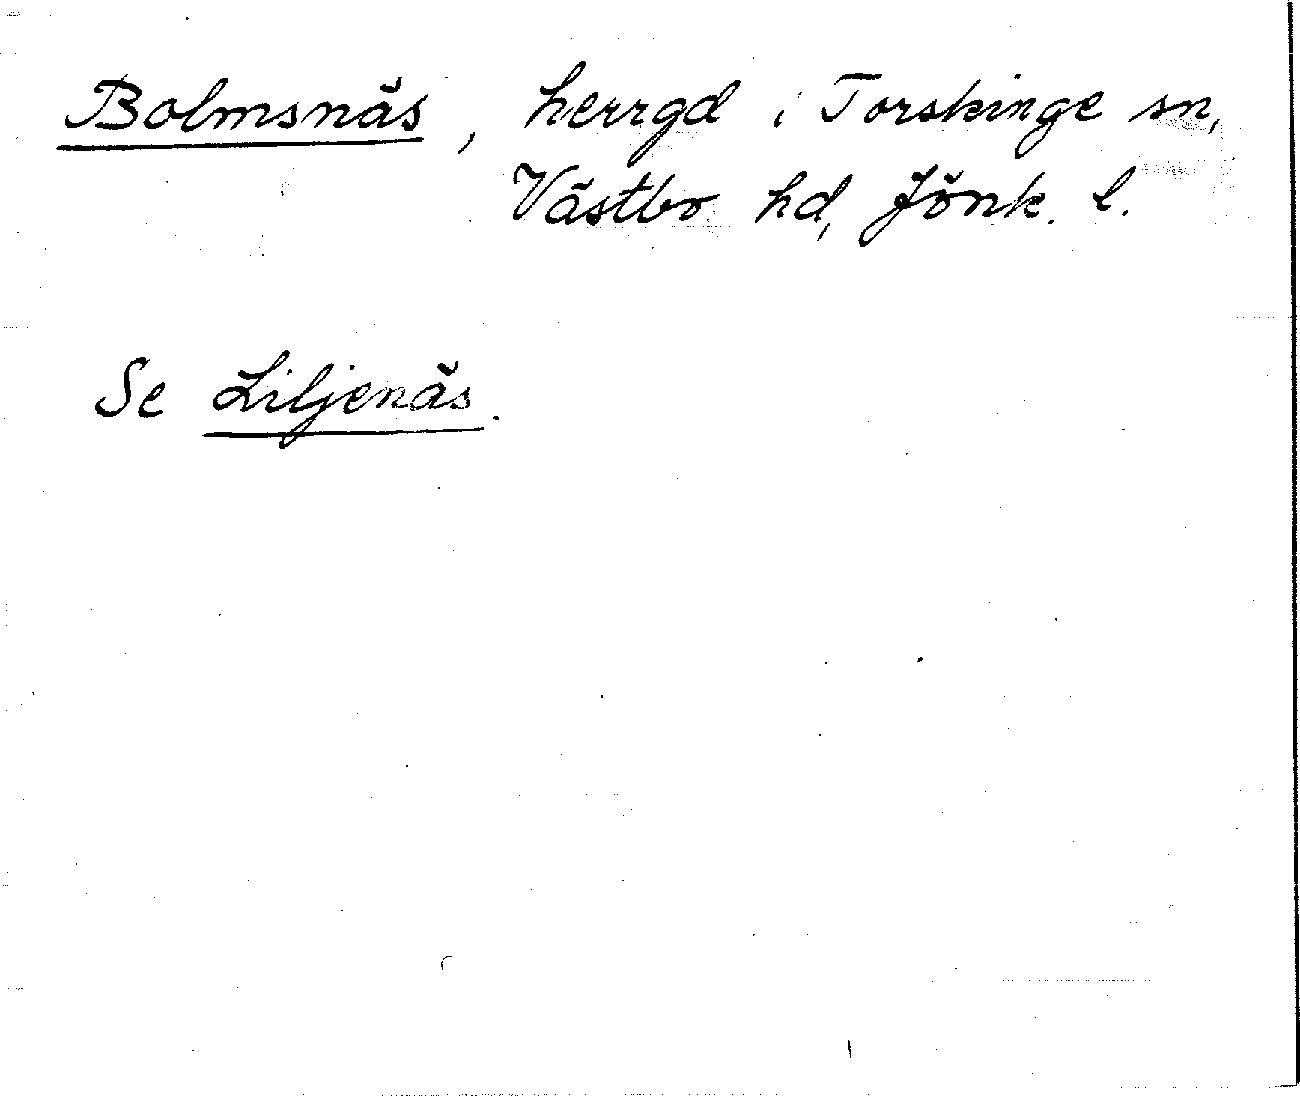 Bolmsnäs, herrgd i Torskinge sn,
Västbo hd, Jönk. l.
Se Liljenäs.